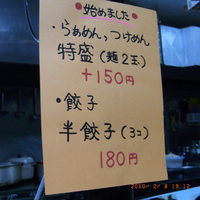 ●始めました●
・らぁめん、つけめん
特盛(麺2玉)
+150円
・餃子
半餃子(3コ)
180円
2010/ 2/ 8 19:12